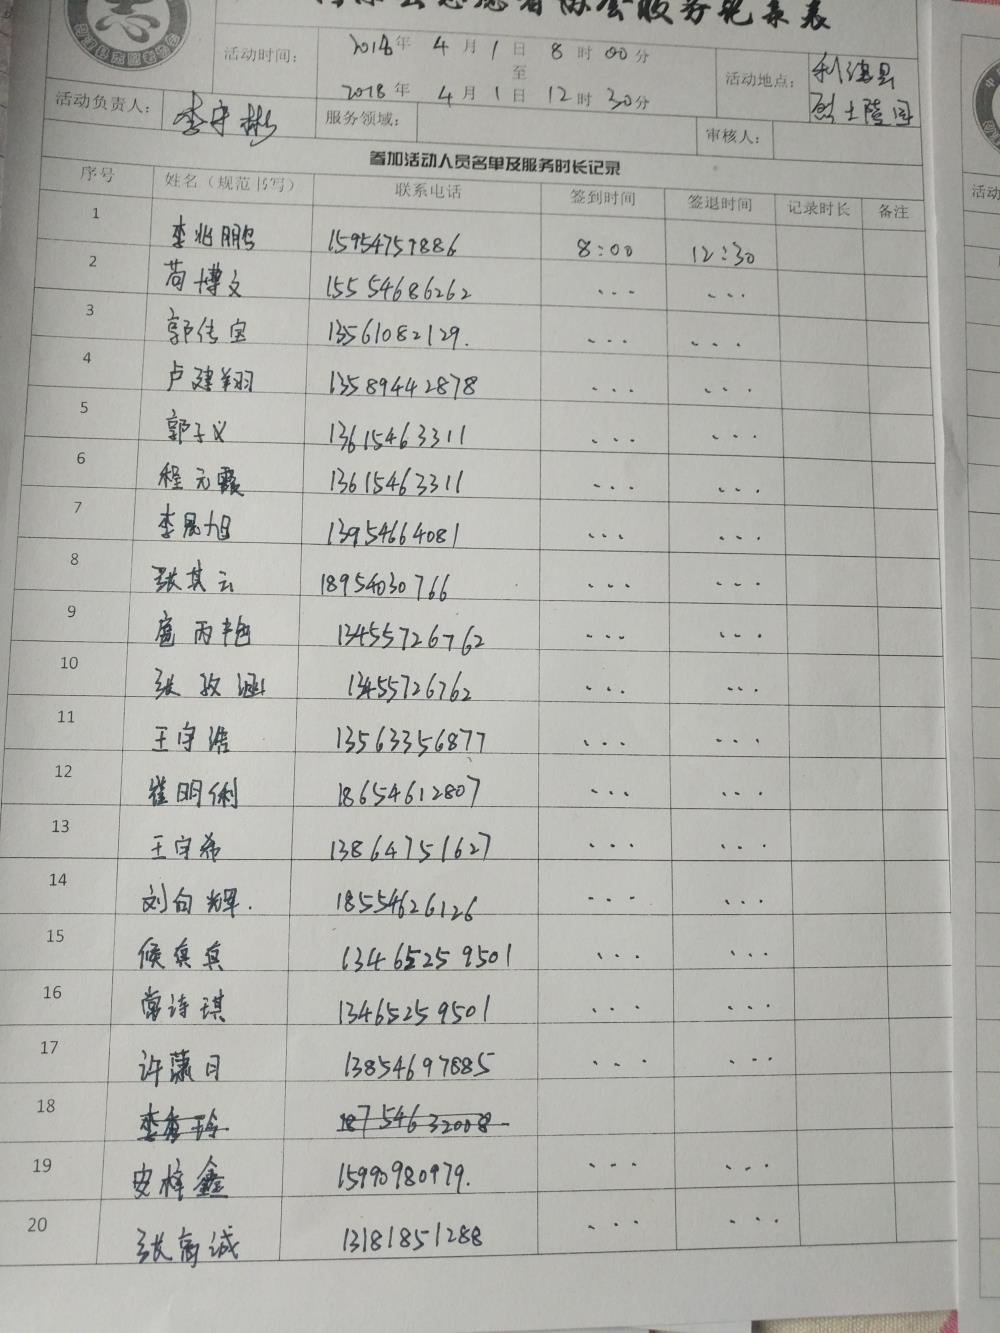 志愿者协会服务记录表
活动时间： 2018年 4月1日 8时00分
至
2018年 4月1日 12时30分
活动地点： 利津县
烈士陵园
活动负责人： 李守彬 服务领域： 审核人：
参加活动人员名单及服务时长记录
序号 姓名（规范书写） 联系电话 签到时间 签退时间 记录时长 备注
1 李兆鹏 15954757886 8:00 12:30
2 苟博文 15554686262 ... ...
3 郭传宝 13561082129. ... ...
4 卢建翔 13589442878 ... ...
5 郭子义 13615463311 ... ...
6 程元霞 13615463311 ... ...
7 李晨旭 13954664081 ... ...
8 张其云 18954030766 ... ...
9 扈丙艳 13455726762 ... ...
10 张孜涵 13455726762 ... ...
11 王宇浩 13563356877 ... ...
12 崔明俐 18654612807 ... ...
13 王宇希 13864751627 ... ...
14 刘向辉. 18554626126 ... ...
15 侯真真 13465259501 ... ...
16 常诗琪 13465259501 ... ...
17 许 日 13854697885 ... ...
18 李秀玲 18754632008
19 安梓鑫 15990980979. ... ...
20 张高诚 13181851288 ... ...